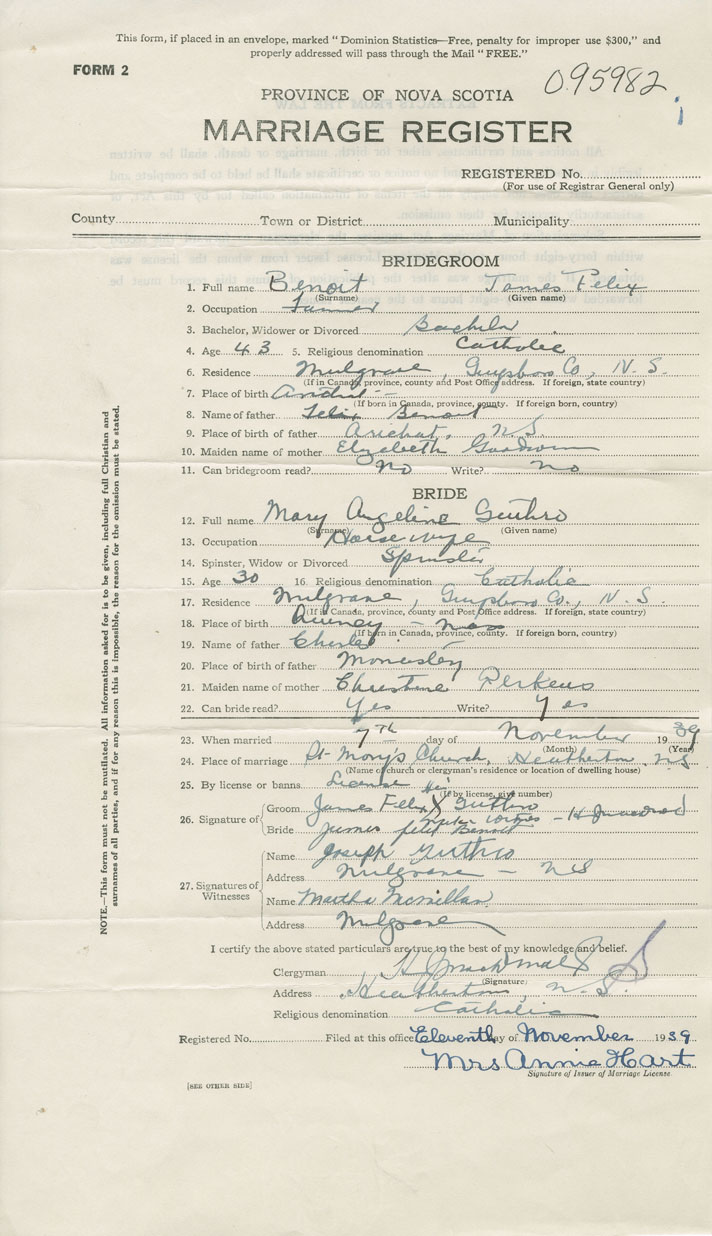 This form, if placed in an envelope, marked "Dominion Statistics—Free, penalty for improper use $300," and
properly addressed will pass through the Mail "FREE."
FORM 2
095982
PROVINCE OF NOVA SCOTIA
MARRIAGE REGISTER
REGISTERED No.
(For use of Registrar General only)
County Town or District Municipality
BRIDEGROOM
1. Full name Benoit James Felix
(Surname) (Given name)
2. Occupation Farmer
3. Bachelor, Widower or Divorced Bachelor
4. Age 43 5. Religious denomination Catholic
6. Residence Mulgrave, Guysboro Co., N.S.
(If in Canada, province, county and Post Office address. If foreign, state country)
7. Place of birth Arichat
(If born in Canada, province, county. If foreign born, country)
8. Name of father Felix Benoit
9. Place of birth of father Arichat, N.S.
10. Maiden name of mother Elizabeth Goodwin
11. Can bridegroom read? No Write? no
BRIDE
12. Full name Mary Angeline Guthro
(Surname) (Given name)
13. Occupation Housewife
14. Spinster, Widow or Divorced Spinster
15. Age 30 16. Religious denomination Catholic
17. Residence Mulgrave, Guysboro Co., N.S.
(If in Canada, province, county and Post Office address. If foreign, state country)
18. Place of birth Quincy - Mass
(If born in Canada, province, county. If foreign born, country)
19. Name of father Charles
20. Place of birth of father
21. Maiden name of mother Christine Perkens
22. Can bride read? Yes Write? yes
23. When married 7th day of November 1939
(Month) (Year)
24. Place of marriage St. Mary's Church, Heatherton NS
(Name of church or clergyman's residence or location of dwelling house)
25. By license or banns License
(If by license, give number)
26. Signature of Groom James Felix X Guthro
Bride James felix Benoit
27. Signatures of Witnesses
Name Joseph Guthro
Address Mulgrave - NS
Name Martha McMillan
Address Mulgrave
I certify the above stated particulars are true to the best of my knowledge and belief.
Clergyman
(Signature)
Address Heatherton, N.S.
Religious denomination Catholic
Registered No. Filed at this office Eleventh day of November 1939
Mrs Annie Hart
Signature of Issuer of Marriage License
[SEE OTHER SIDE]
NOTE.—This form must not be mutilated. All information asked for is to be given, including full Christian and
surnames of all parties, and if for any reason this is impossible, the reason for the omission must be stated.